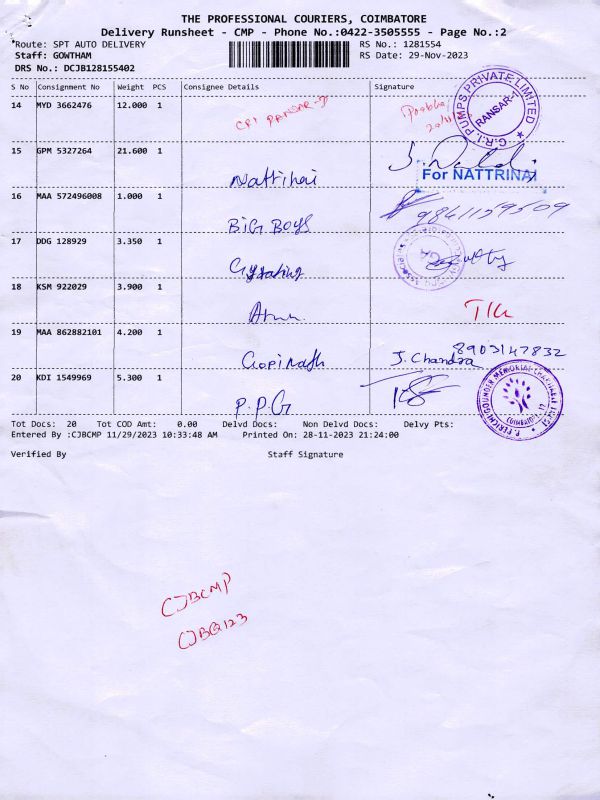 THE PROFESSIONAL COURIERS, COIMBATORE
Delivery Runsheet - CMP - Phone No.:0422-3505555 - Page No.:2
Route: SPT AUTO DELIVERY RS No.: 1281554
Staff: GOWTHAM RS Date: 29-Nov-2023
DRS No.: DCJB128155402
S No Consignment No Weight PCS Consignee Details Signature
14 MYD 3662476 12.000 1
C.R.I. PUMPS PRIVATE LIMITED
RANSAR-1
15 GPM 5327264 21.600 1 Nattrinai
For NATTRINAI
16 MAA 572496008 1.000 1 BIG BOYS 9841159509
17 DDG 128929 3.350 1
18 KSM 922029 3.900 1
19 MAA 862882101 4.200 1 Gopinath J. Chandra 8903147832
20 KDI 1549969 5.300 1 P.P.G
Tot Docs: 20 Tot COD Amt: 0.00 Delvd Docs: Non Delvd Docs: Delvy Pts:
Entered By :CJBCMP 11/29/2023 10:33:48 AM Printed On: 28-11-2023 21:24:00
Verified By Staff Signature
CJBCMP
CJBQ123